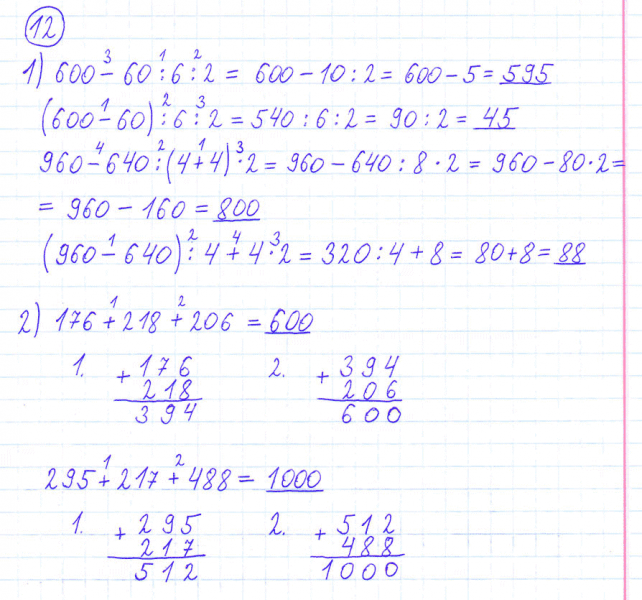 12
1) 600 - 60 : 6 : 2 = 600 - 10 : 2 = 600 - 5 = 595
(600 - 60) : 6 : 2 = 540 : 6 : 2 = 90 : 2 = 45
960 - 640 : (4 + 4) · 2 = 960 - 640 : 8 · 2 = 960 - 80 · 2 =
= 960 - 160 = 800
(960 - 640) : 4 + 4 · 2 = 320 : 4 + 8 = 80 + 8 = 88
2) 176 + 218 + 206 = 600
1. + 176 2. + 394
218 206
394 600
295 + 217 + 488 = 1000
1. + 295 2. + 512
217 488
512 1000